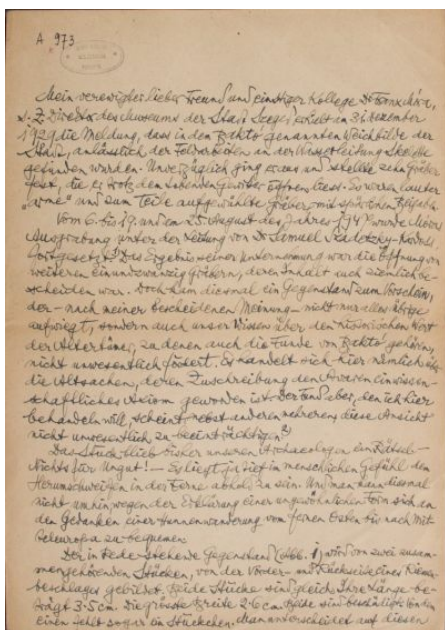 A 973
Mein verewigter lieber Freund und einstiger Kollege Dr Franz Móra,
z. Z. Direktor des Museums der Stadt Szeged erhielt am 31. Dezember
die Meldung, dass in dem genannten Weichbilde der
Stadt, anlässlich der an der Wasserleitung Skelette
gefunden wurden. Unverzüglich ging er aus und stellte zehn Gräber
fest, die er trotz dem öffnen liess. Es waren lauter
"arme" und zum Teile Gräber mit spärlichen
Vom 6. bis 19. und am 25. August des Jahres wurde Móra's
Ausgrabung unter der Leitung von Dr Samuel
fortgesetzt. Das Ergebnis seiner Unternehmung war die Öffnung von
weiteren einundzwanzig Gräbern, deren Inhalt auch ziemlich be-
scheiden war. Doch kam diesmal ein Gegenstand zum Vorschein,
der - nach meiner bescheidenen Meinung - nicht nur alles übrige
aufwiegt, sondern auch unser Wissen über den historischen Wert
der Altertümer, zu denen auch die Funde von gehören,
nicht unwesentlich fördert. Es handelt sich hier nämlich über
die Altsachen, deren Zuschreibung den Awaren ein wissen-
schaftliches Axiom geworden ist. Der Fund aber, den ich hier
behandeln will, scheint, nebst anderen mehreren diese Ansicht
nicht unwesentlich zu beeinträchtigen.
Das Stück blieb bisher unseren Archaeologen ein Rätsel.
Nichts für Ungut! - Es liegt ja tief im menschlichen Gefühl dem
Herumschweifen in der Ferne abhold zu sein. Und man kann diesmal
nicht umhin, wegen der Erklärung einer ungewöhnlichen Form sich an
den Gedanken einer wanderung vom fernen Osten bis nach Mit-
teleuropa zu bequemen.
Der in Rede stehende Gegenstand (Abb. 1) wird von zwei zusam-
mengehörenden Stücken, von der Vorder- und Rückseite eines Riemen-
beschlages gebildet. Beide Stücke sind gleich. Ihre Länge be-
trägt 3·5 cm. Die grösste Breite 2·6 cm. Beide sind beschädigt. Von dem
einen fehlt sogar ein Stückchen. Man unterscheidet auf diesen